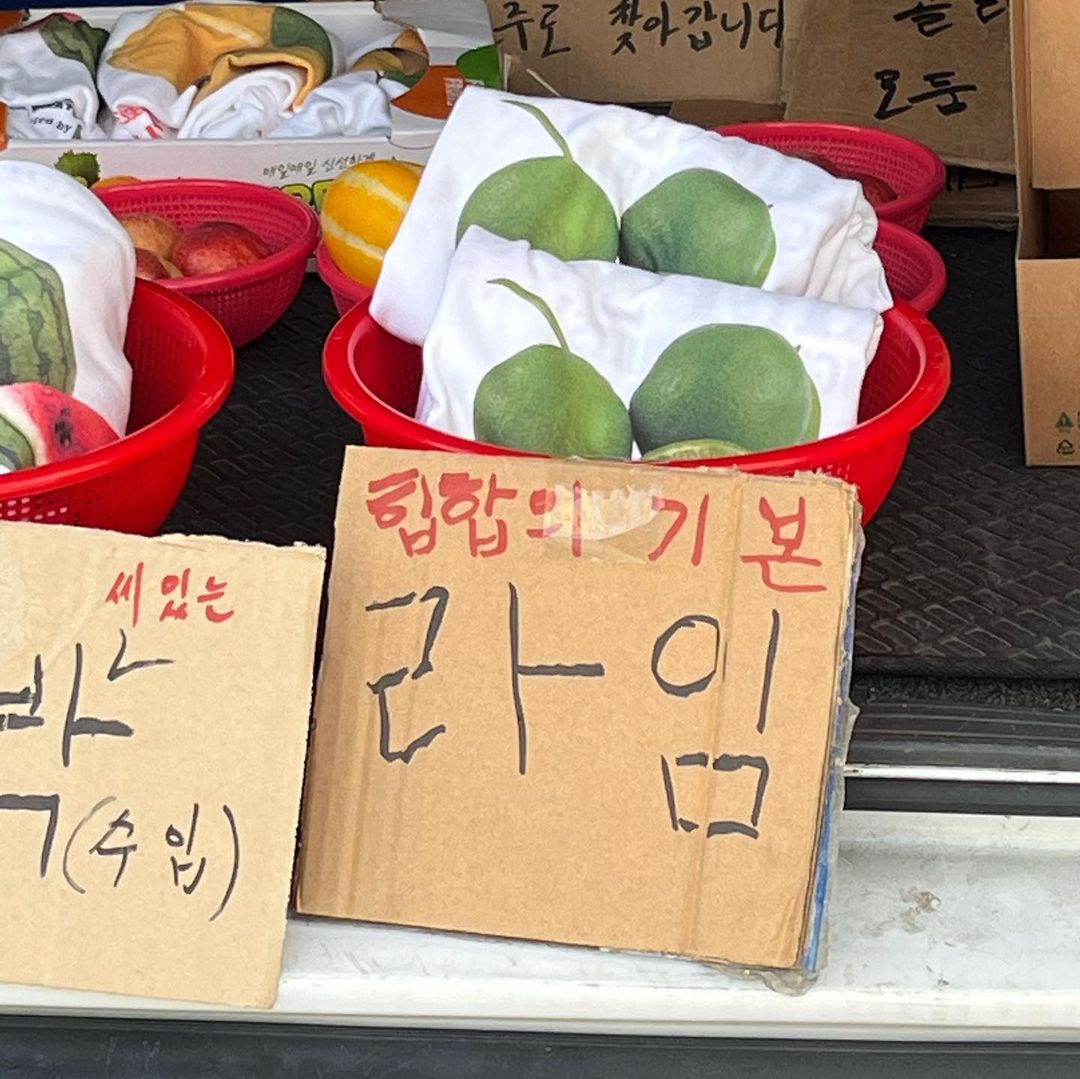 주로 찾아갑니다
모둠
매일매일 신선하게
힙합의 기본
라임
씨 있는
박
(수입)